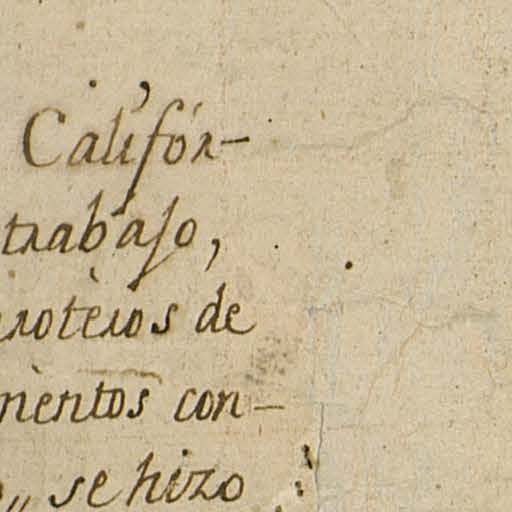 Califór-
trabajo,
roteros de
mentos con-
„ se hizo